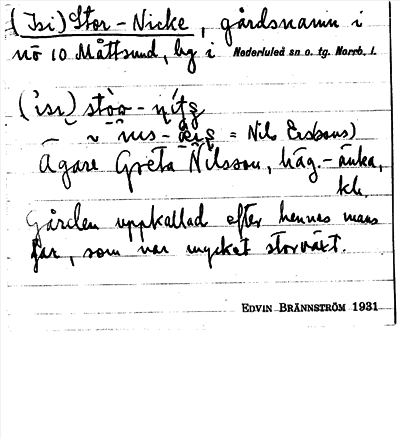 (Isi) Stor-Nicke, gårdsnamn i
nö 10 Måttsund, by i Nederluleå sn o. tg. Norrb. l.
Ägare Greta Nilsson, häg.-änka,
Gården uppkallad efter hennes mans
far, som var mycket storväxt.
EDVIN BRÄNNSTRÖM 1931